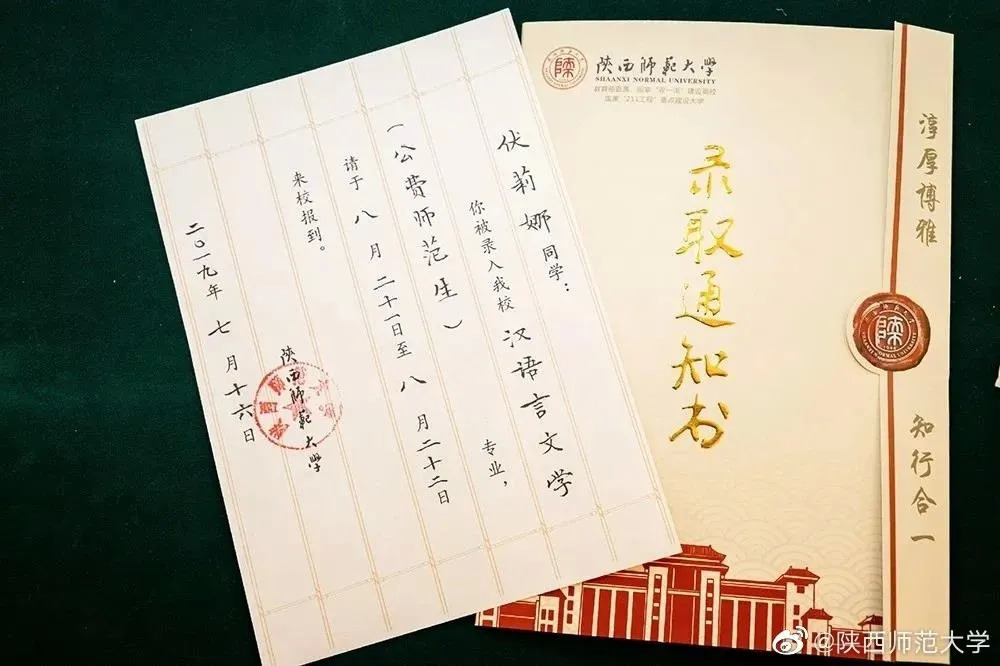 伏莉娜同学：
你被录入我校汉语言文学专业，
（公费师范生）
请于八月二十一日至八月二十二日
来校报到。
陕西师范大学
二〇一九年七月十六日
陕西师范大学
SHAANXI NORMAL UNIVERSITY
教育部直属、国家“双一流”建设高校
国家“211工程”重点建设大学
录取通知书
淳厚博雅
知行合一
陕
@陕西师范大学